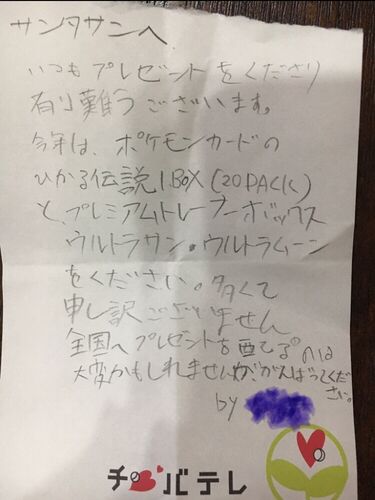 サンタサンへ
いつもプレゼントをくださり
有り難うございます。
今年は、ポケモンカードの
ひかる伝説1BOX(20PACK)
と、プレミアムトレーナーボックス
ウルトラサン・ウルトラムーン
をください。多くて
申し訳ございません
全国へプレゼントを配てるのは
大変かもしれませんががんばってくだ
さい。
by
チバテレ